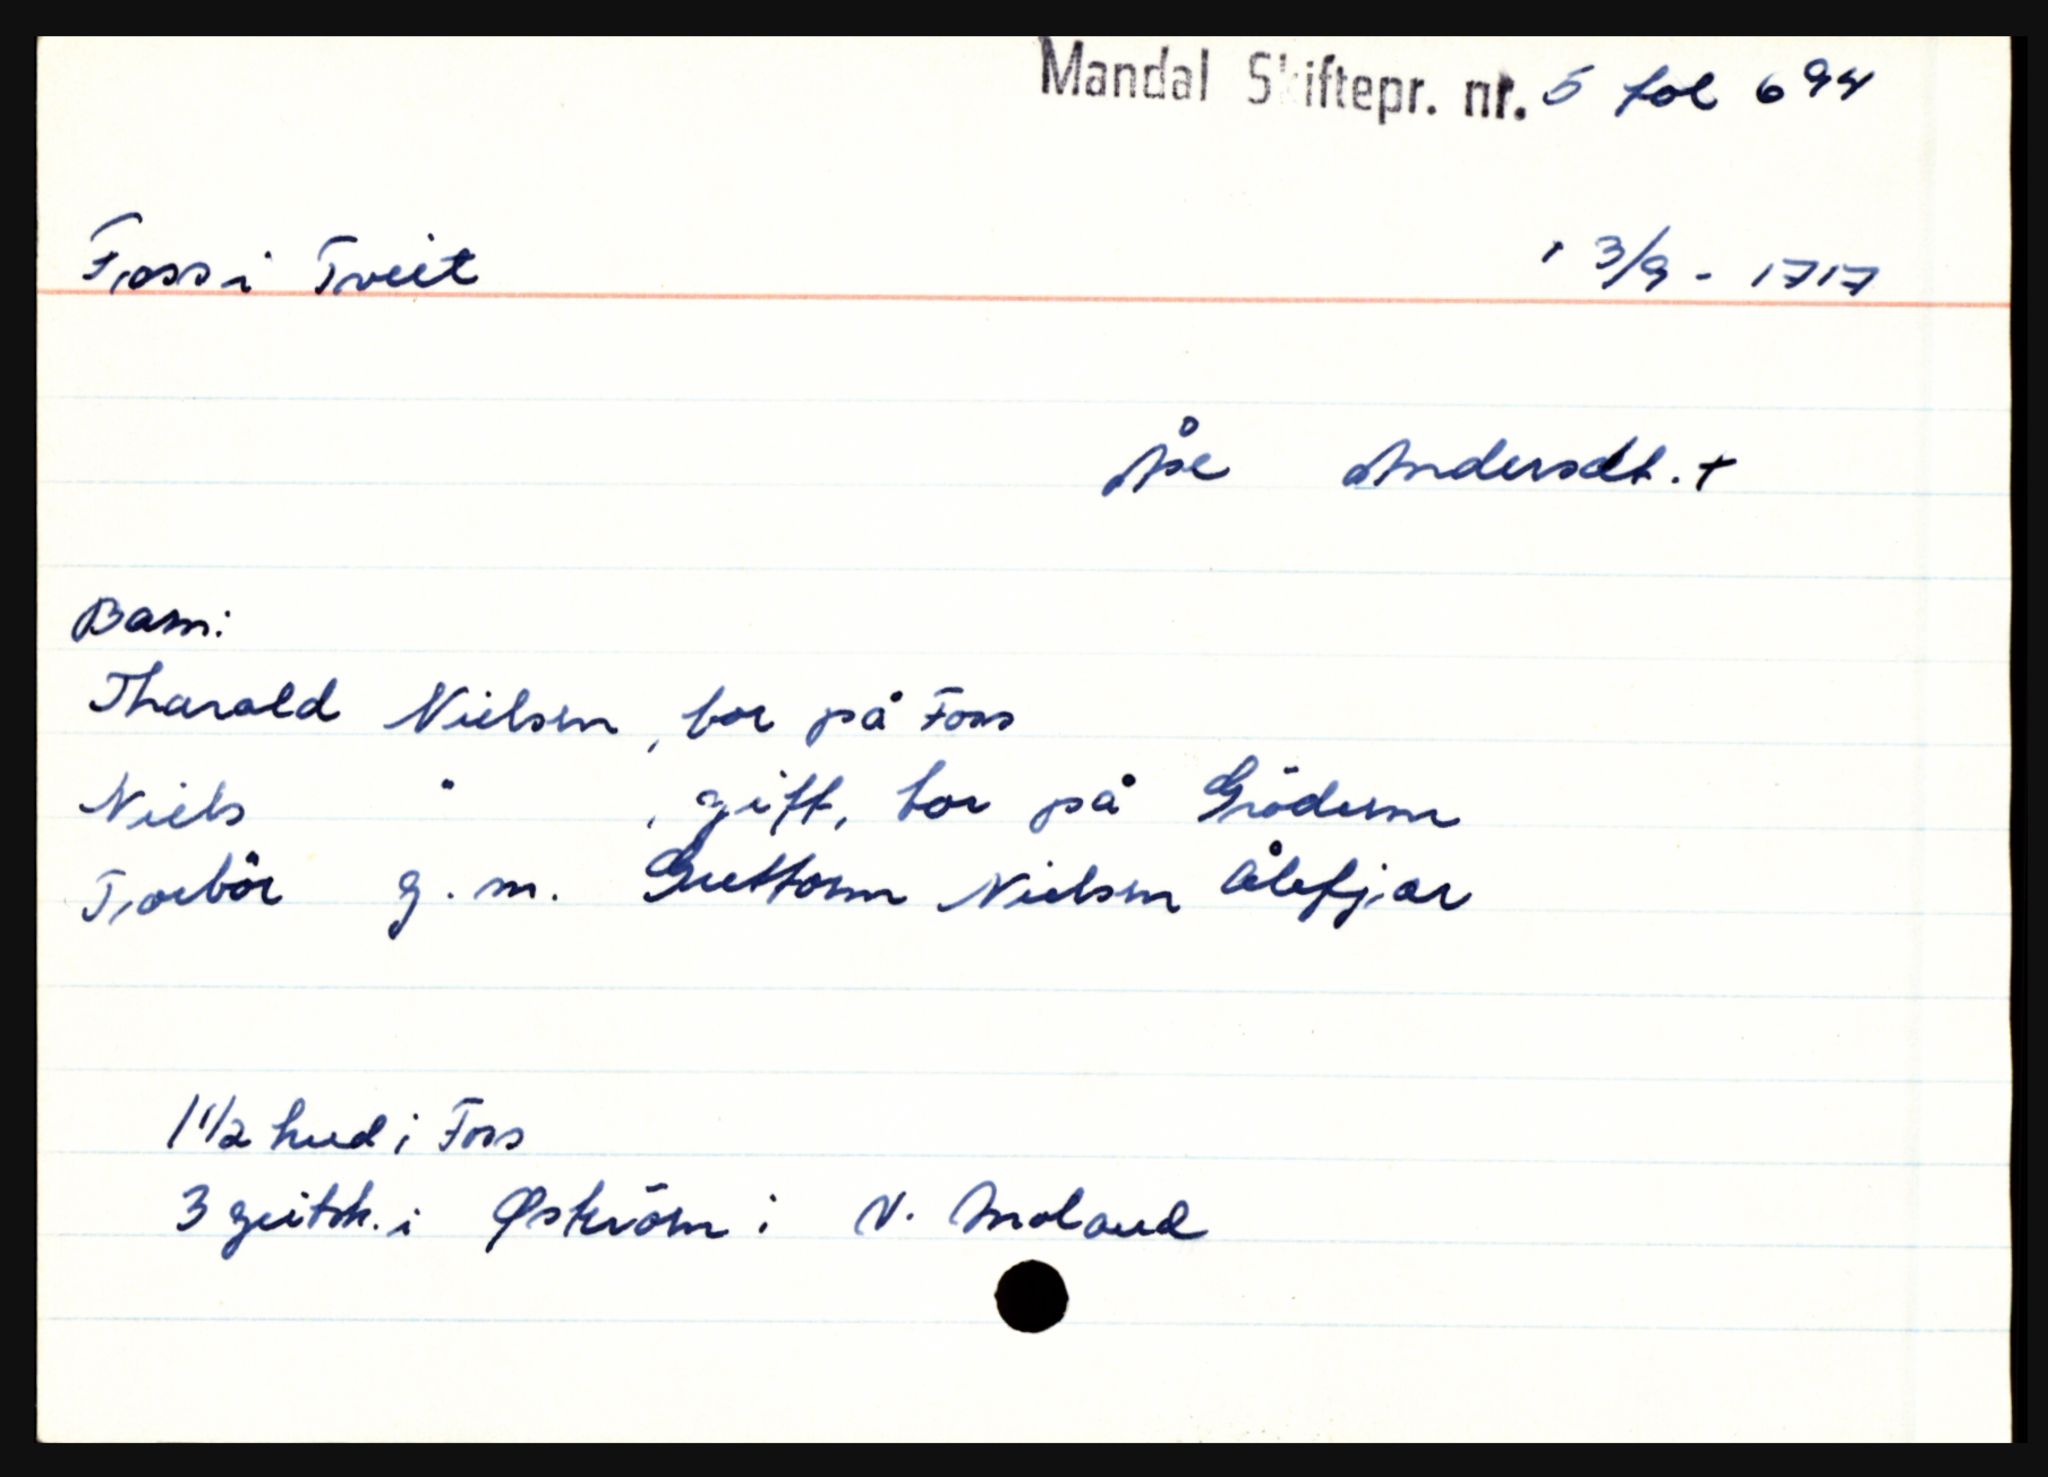 Mandal Skiftepr. nr. 5 fol 694
Foss i Tveit
13/9 - 1717
Åse Andersdt. +
Barn:
Tharald Nielsen, bor på Foss
Niels " , gift, bor på Grödem
Torbör g. m. Guttorm Nielsen Ålefjær
1 1/2 hud i Foss
3 geitsk. i Øström i N.